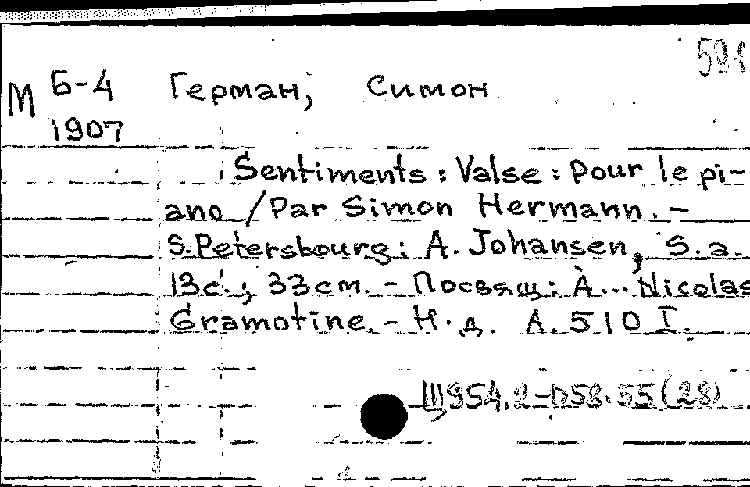 М Б-4 Герман, Симон
1907
Sentiments : Valse : Pour le pi-
ano / Par Simon Hermann. -
S.Petersbourg : A. Johansen, S.a.
13с.; 33см. - Посвящ: À... Nicolas
Gramotine. - Н.д. A. 510 I.
Щ954.2-D58.55(28)